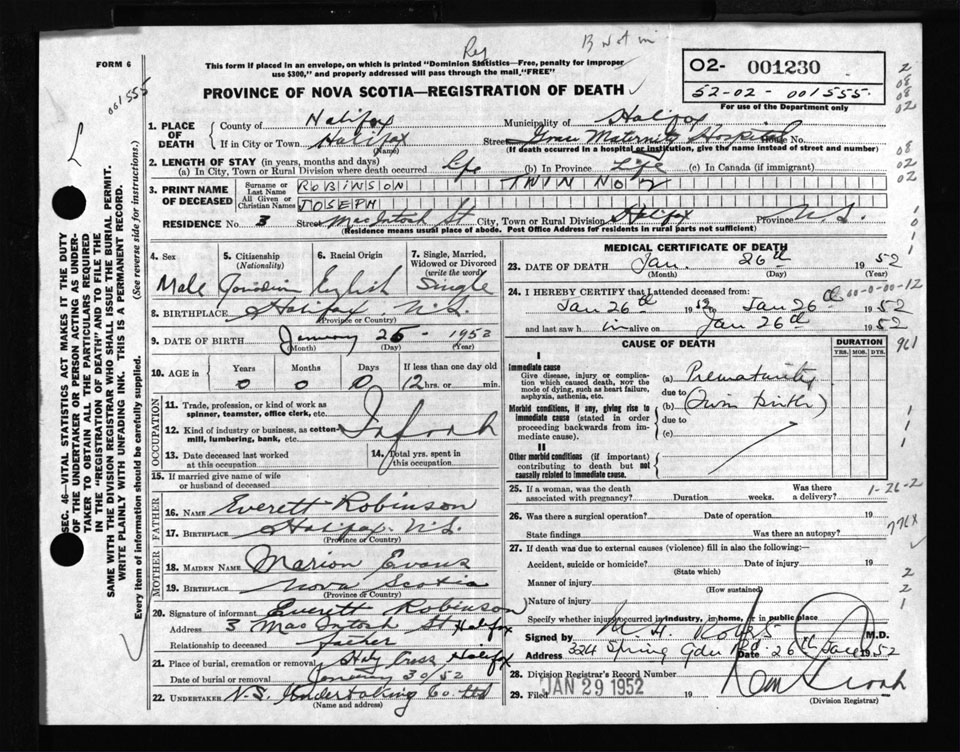 Reg
FORM 6
This form if placed in an envelope, on which is printed "Dominion Statistics—Free, penalty for improper use $300," and properly addressed will pass through the mail, "FREE"
PROVINCE OF NOVA SCOTIA—REGISTRATION OF DEATH
02- 001230
52-02-001555
For use of the Department only
001555
SEC. 46—VITAL STATISTICS ACT MAKES IT THE DUTY
OF THE UNDERTAKER OR PERSON ACTING AS UNDER-
TAKER TO OBTAIN ALL THE PARTICULARS REQUIRED
IN THE "REGISTRATION OF DEATH" AND TO FILE THE
SAME WITH THE DIVISION REGISTRAR WHO SHALL ISSUE THE BURIAL PERMIT.
WRITE PLAINLY WITH UNFADING INK. THIS IS A PERMANENT RECORD.
Every item of information should be carefully supplied. (See reverse side for instructions.)
1. PLACE OF DEATH County of Halifax Municipality of Halifax
If in City or Town Halifax (Name) Street Grace Maternity Hospital House No.
(If death occurred in a hospital or institution, give the name instead of street and number)
2. LENGTH OF STAY (in years, months and days)
(a) In City, Town or Rural Division where death occurred life (b) In Province Life (c) In Canada (if immigrant)
3. PRINT NAME OF DECEASED Surname or Last Name ROBINSON TWIN NO 2
All Given or Christian Names JOSEPH
RESIDENCE No. 3 Street MacIntosh St City, Town or Rural Division Halifax Province N.S.
(Residence means usual place of abode. Post Office Address for residents in rural parts not sufficient)
4. Sex 5. Citizenship (Nationality) 6. Racial Origin 7. Single, Married, Widowed or Divorced (write the word)
Male Canadian English Single
8. BIRTHPLACE Halifax, N.S.
(Province or Country)
9. DATE OF BIRTH January 26 - 1952
(Month) (Day) (Year)
10. AGE in Years Months Days If less than one day old
0 0 0 12 hrs. or min.
OCCUPATION
11. Trade, profession, or kind of work as spinner, teamster, office clerk, etc.
12. Kind of industry or business, as cotton-mill, lumbering, bank, etc.
13. Date deceased last worked at this occupation 14. Total yrs. spent in this occupation
15. If married give name of wife or husband of deceased
FATHER
16. NAME Everett Robinson
17. BIRTHPLACE Halifax N.S.
(Province or Country)
MOTHER
18. MAIDEN NAME Marion Evans
19. BIRTHPLACE Nova Scotia
(Province or Country)
20. Signature of informant Everett Robinson
Address 3 MacIntosh St Halifax
Relationship to deceased father
21. Place of burial, cremation or removal Holy Cross, Halifax
Date of burial or removal January 30/52
22. UNDERTAKER N.S. Undertaking Co. Ltd
(Name and address)
MEDICAL CERTIFICATE OF DEATH
23. DATE OF DEATH Jan. 26th 1952
(Month) (Day) (Year)
24. I HEREBY CERTIFY that I attended deceased from:
Jan 26th 1952 Jan 26th 1952
00-0-00-12
and last saw h im alive on Jan 26th 1952
CAUSE OF DEATH DURATION
YRS. MOS. DYS.
I
Immediate cause
Give disease, injury or complication which caused death, NOT the mode of dying, such as heart failure, asphyxia, asthenia, etc.
(a) Prematurity
due to
Morbid conditions, if any, giving rise to immediate cause (stated in order proceeding backwards from immediate cause).
(b) (Twin birth)
due to
(c)
II
Other morbid conditions (if important) contributing to death but not causally related to immediate cause.
25. If a woman, was the death associated with pregnancy? Duration weeks. Was there a delivery?
1-26-2
26. Was there a surgical operation? Date of operation 19
State findings Was there an autopsy?
27. If death was due to external causes (violence) fill in also the following:—
Accident, suicide or homicide? (State which) Date of injury 19
Manner of injury (How sustained)
Nature of injury
Specify whether injury occurred in industry, in home, or in public place
Signed by M.D.
Address 324 Spring Gdn Rd. Date 26th Jan 1952
28. Division Registrar's Record Number
29. Filed JAN 29 1952 19
(Division Registrar)